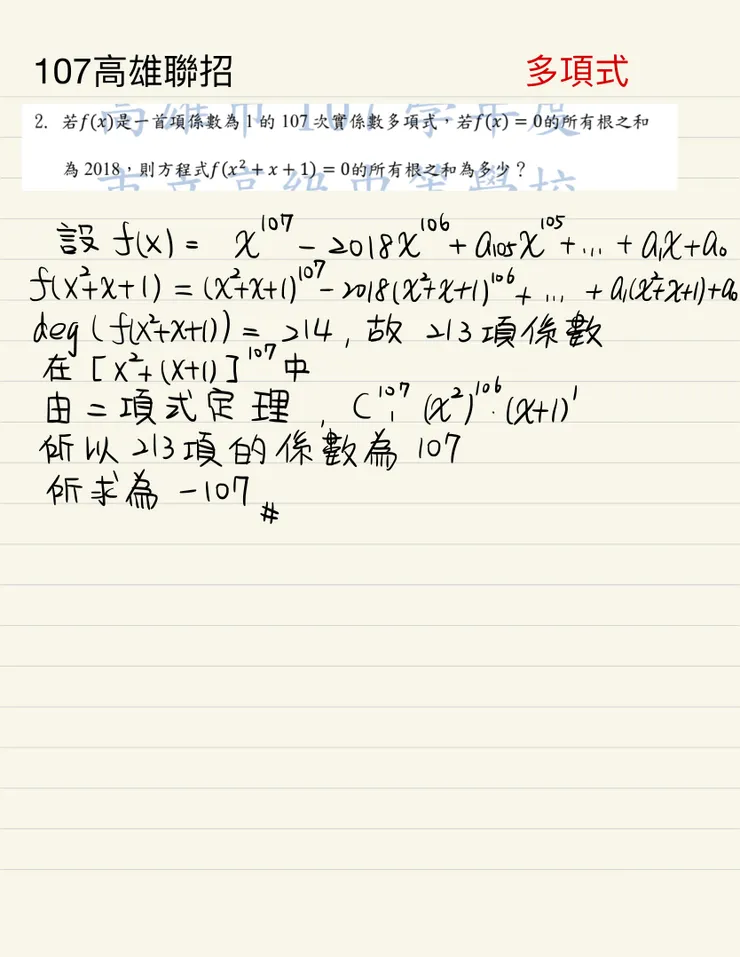 107高雄聯招
多項式
高雄市 107 學年度
2. 若f(x)是一首項係數為 1 的 107 次實係數多項式，若f(x) = 0的所有根之和
為 2018，則方程式f(x² + x + 1) = 0的所有根之和為多少？
市立高級中等學校
設 f(x) = x¹⁰⁷ - 2018x¹⁰⁶ + a₁₀₅x¹⁰⁵ + ... + a₁x + a₀
f(x²+x+1) = (x²+x+1)¹⁰⁷ - 2018(x²+x+1)¹⁰⁶ + ... + a₁(x²+x+1) + a₀
deg (f(x²+x+1)) = 214, 故 213 項係數
在 [x²+(x+1)]¹⁰⁷ 中
由二項式定理, C₁¹⁰⁷ (x²)¹⁰⁶·(x+1)¹
所以 213 項的係數為 107
所求為 -107 #